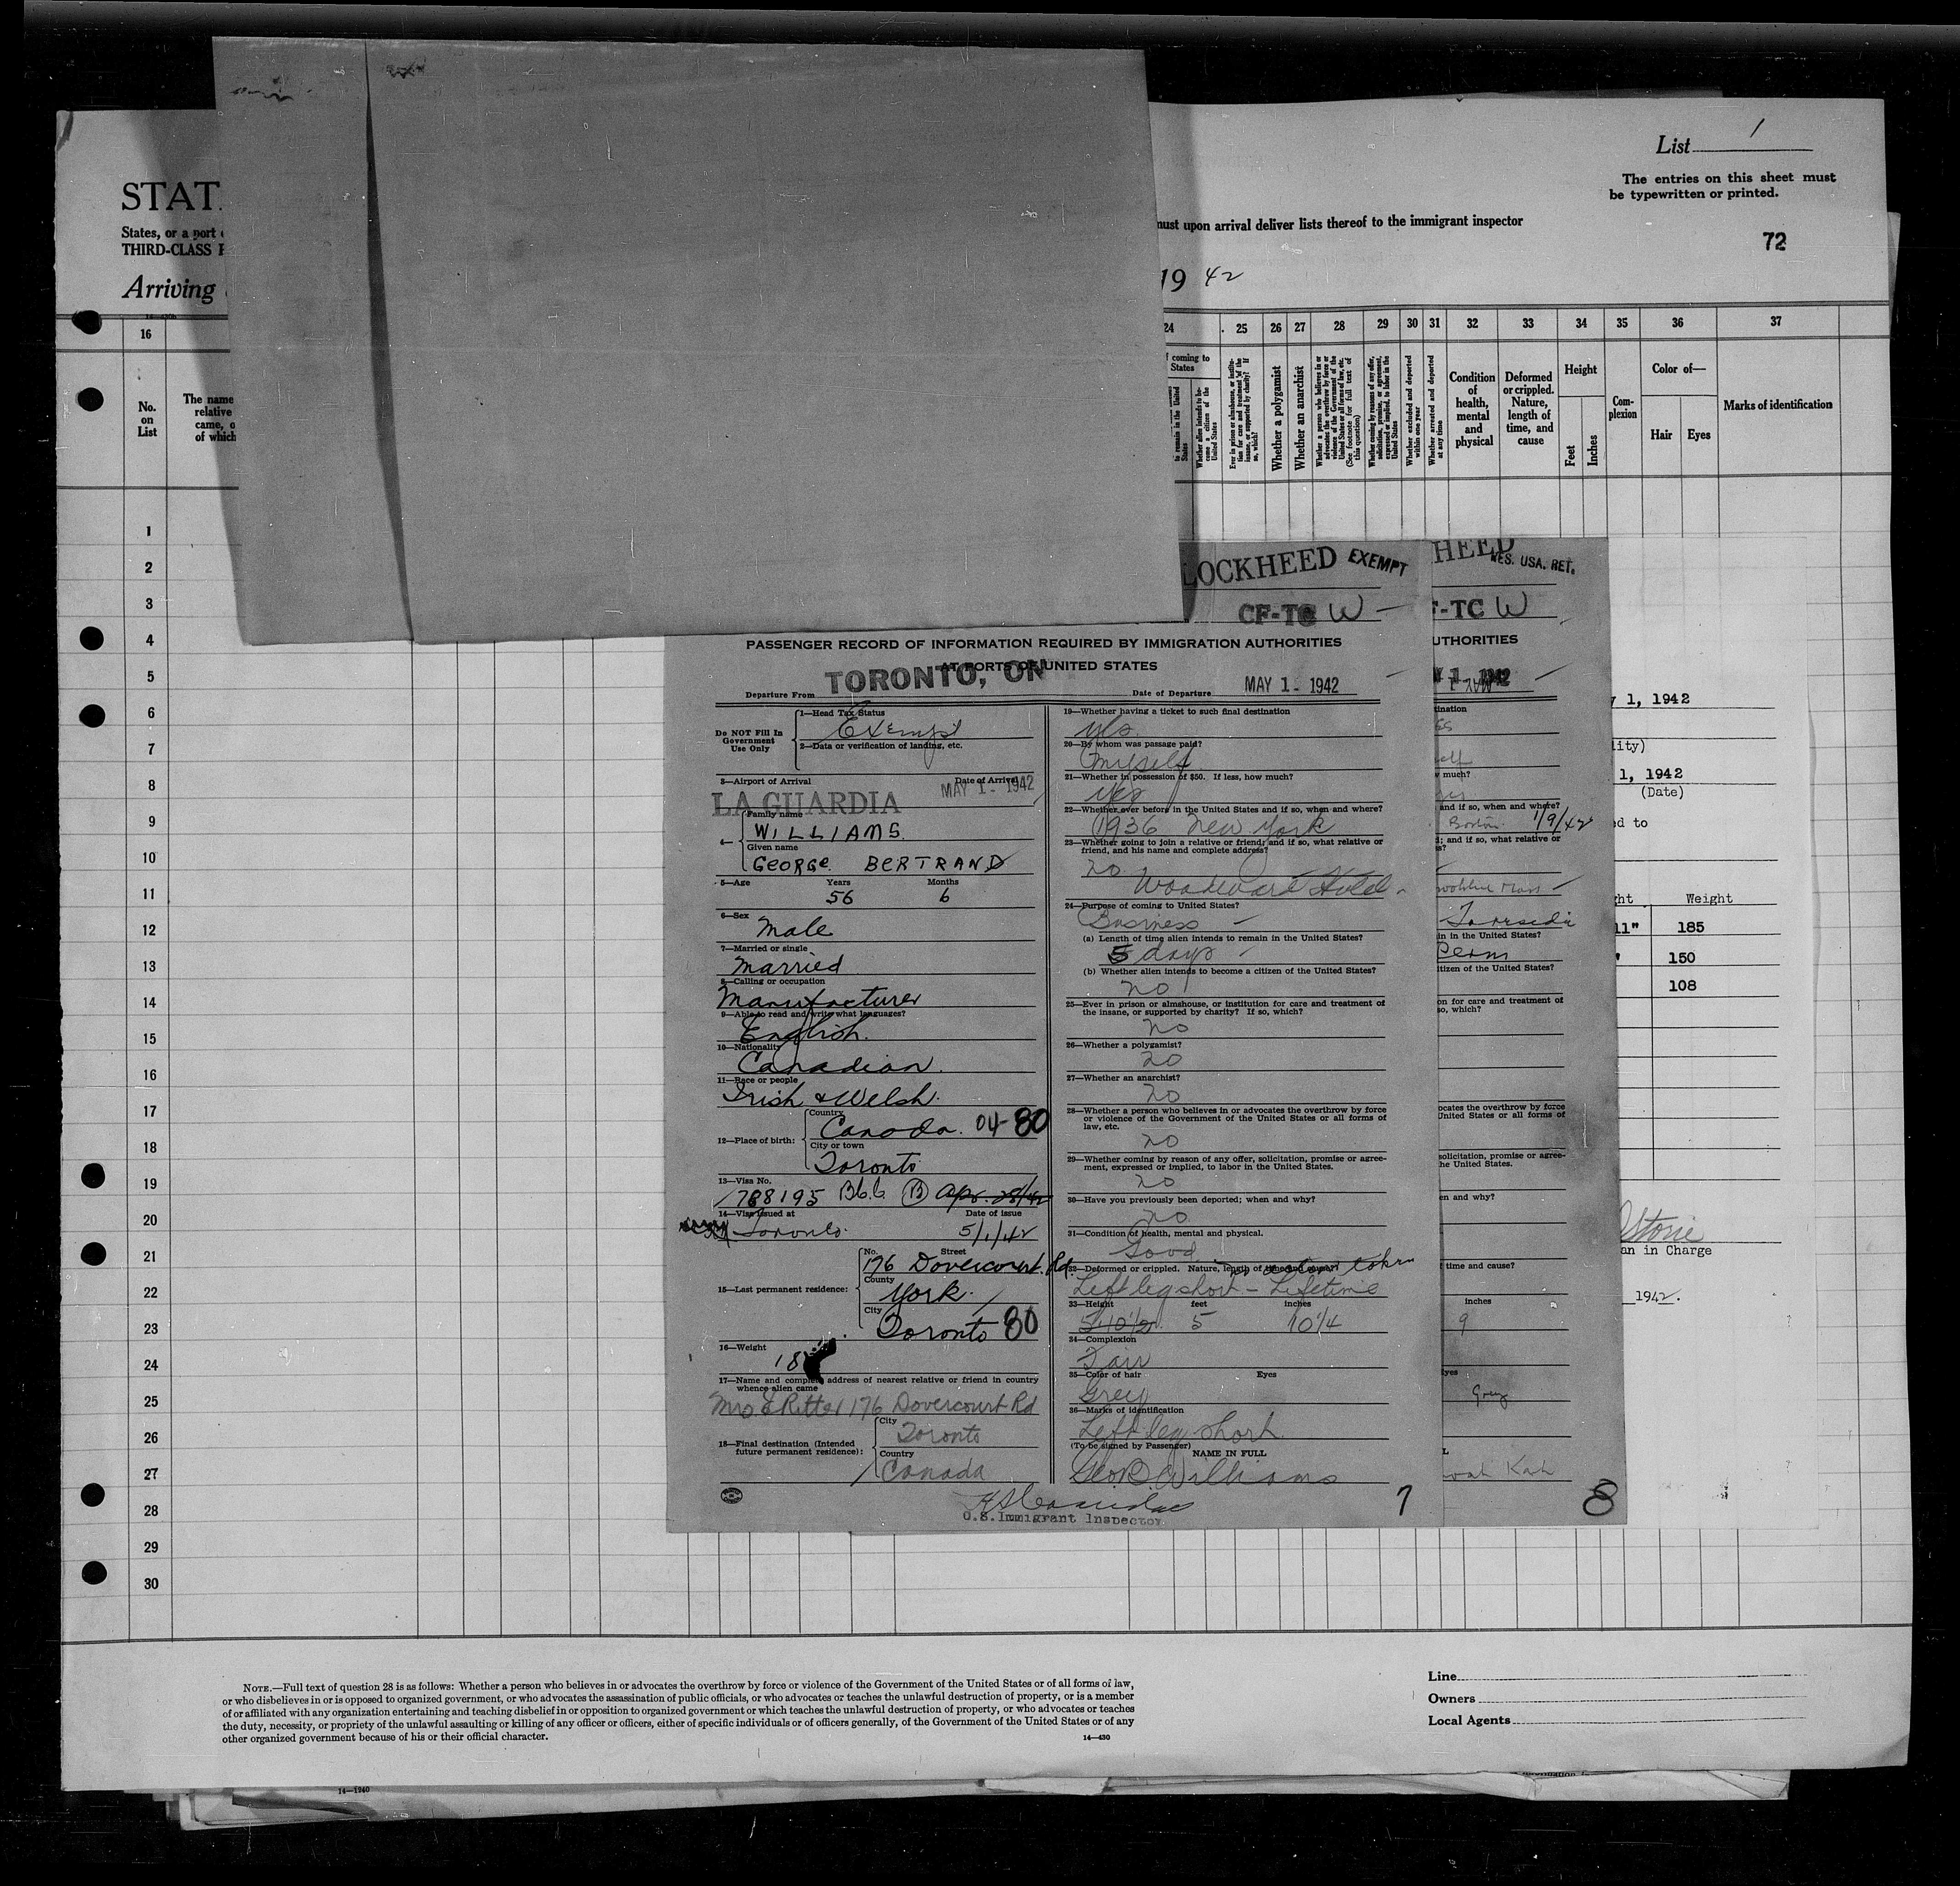 List 1
The entries on this sheet must
be typewritten or printed.
STAT
States, or a port
THIRD-CLASS
must upon arrival deliver lists thereof to the immigrant inspector
72
Arriving
19 42
16 24 25 26 27 28 29 30 31 32 33 34 35 36 37
No.
on
List
The name
relative
came, o
of which
f coming to
States
to remain in the United
States
Whether alien intends to be-
come a citizen of the
United States
Ever in prison or almshouse, or institu-
tion for care and treatment of the
insane, or supported by charity? If
so, which?
Whether a polygamist
Whether an anarchist
Whether a person who believes in or
advocates the overthrow by force or
violence of the Government of the
United States or all forms of law, etc.
(See footnote for full text of
this question)
Whether coming by reasons of any offer,
solicitation, promise, or agreement,
expressed or implied, to labor in the
United States
Whether excluded and deported
within one year
Whether arrested and deported
at any time
Condition
of
health,
mental
and
physical
Deformed
or crippled.
Nature,
length of
time, and
cause
Height
Feet
Inches
Com-
plexion
Color of—
Hair
Eyes
Marks of identification
1
2
3
4
5
6
7
8
9
10
11
12
13
14
15
16
17
18
19
20
21
22
23
24
25
26
27
28
29
30
LOCKHEED EXEMPT
CF-TC W -
PASSENGER RECORD OF INFORMATION REQUIRED BY IMMIGRATION AUTHORITIES
AT PORTS OF UNITED STATES
Departure From TORONTO, ON Date of Departure MAY 1 - 1942
Do NOT Fill In
Government
Use Only
1—Head Tax Status
Exempt
2—Data or verification of landing, etc.
3—Airport of Arrival Date of Arrival
LA GUARDIA MAY 1 - 1942
4— Family name
WILLIAMS.
Given name
GEORGE BERTRAND
5—Age Years Months
56 6
6—Sex
Male
7—Married or single
Married
8—Calling or occupation
Manufacturer
9—Able to read and write what languages?
English.
10—Nationality
Canadian.
11—Race or people
Irish & Welsh.
12—Place of birth: Country
Canada. 04-80
City or town
Toronto
13—Visa No.
768195 B6.6 (B) Apr. 28/42
14—Visa issued at Date of issue
Toronto. 5/1/42
15—Last permanent residence: No. Street
176 Dovercourt Rd.
County
York.
City
Toronto 80
16—Weight
18
17—Name and complete address of nearest relative or friend in country
whence alien came
Mrs E Ritter 176 Dovercourt Rd
18—Final destination (Intended
future permanent residence): City
Toronto
Country
Canada
19—Whether having a ticket to such final destination
yes
20—By whom was passage paid?
Myself
21—Whether in possession of $50. If less, how much?
Yes
22—Whether ever before in the United States and if so, when and where?
1936 New York
23—Whether going to join a relative or friend; and if so, what relative or
friend, and his name and complete address?
no
Woodward Hotel -
24—Purpose of coming to United States?
Business -
(a) Length of time alien intends to remain in the United States?
5 days
(b) Whether alien intends to become a citizen of the United States?
no
25—Ever in prison or almshouse, or institution for care and treatment of
the insane, or supported by charity? If so, which?
no
26—Whether a polygamist?
no
27—Whether an anarchist?
no
28—Whether a person who believes in or advocates the overthrow by force
or violence of the Government of the United States or all forms of
law, etc.
no
29—Whether coming by reason of any offer, solicitation, promise or agree-
ment, expressed or implied, to labor in the United States.
no
30—Have you previously been deported; when and why?
no
31—Condition of health, mental and physical.
Good
32—Deformed or crippled. Nature, length of time and cause?
Left leg short - Lifetime
33—Height feet inches
5' 10 1/2 5 10 1/4
34—Complexion
Fair
35—Color of hair Eyes
Grey
36—Marks of identification
Left leg short
(To be signed by Passenger) NAME IN FULL
Geo B. Williams
U.S. Immigrant Inspector.
7
HEED
RES. USA. RET.
F-TC W
UTHORITIES
Y 1 - 1942
tination
es
elf
w much?
and if so, when and where?
Boston 1/9/42
d; and if so, what relative or
s?
Mass
in in the United States?
Perm
itizen of the United States?
on for care and treatment of
so, which?
ocates the overthrow by force
United States or all forms of
solicitation, promise or agree-
he United States.
en and why?
time and cause?
inches
9
Eyes
Grey
L
Kah
8
y 1, 1942
lity)
1, 1942
(Date)
ed to
ght Weight
11" 185
" 150
108
Stone
an in Charge
1942.
NOTE.—Full text of question 28 is as follows: Whether a person who believes in or advocates the overthrow by force or violence of the Government of the United States or of all forms of law,
or who disbelieves in or is opposed to organized government, or who advocates the assassination of public officials, or who advocates or teaches the unlawful destruction of property, or is a member
of or affiliated with any organization entertaining and teaching disbelief in or opposition to organized government or which teaches the unlawful destruction of property, or who advocates or teaches
the duty, necessity, or propriety of the unlawful assaulting or killing of any officer or officers, either of specific individuals or of officers generally, of the Government of the United States or of any
other organized government because of his or their official character.
14—430
Line
Owners
Local Agents
14—1240